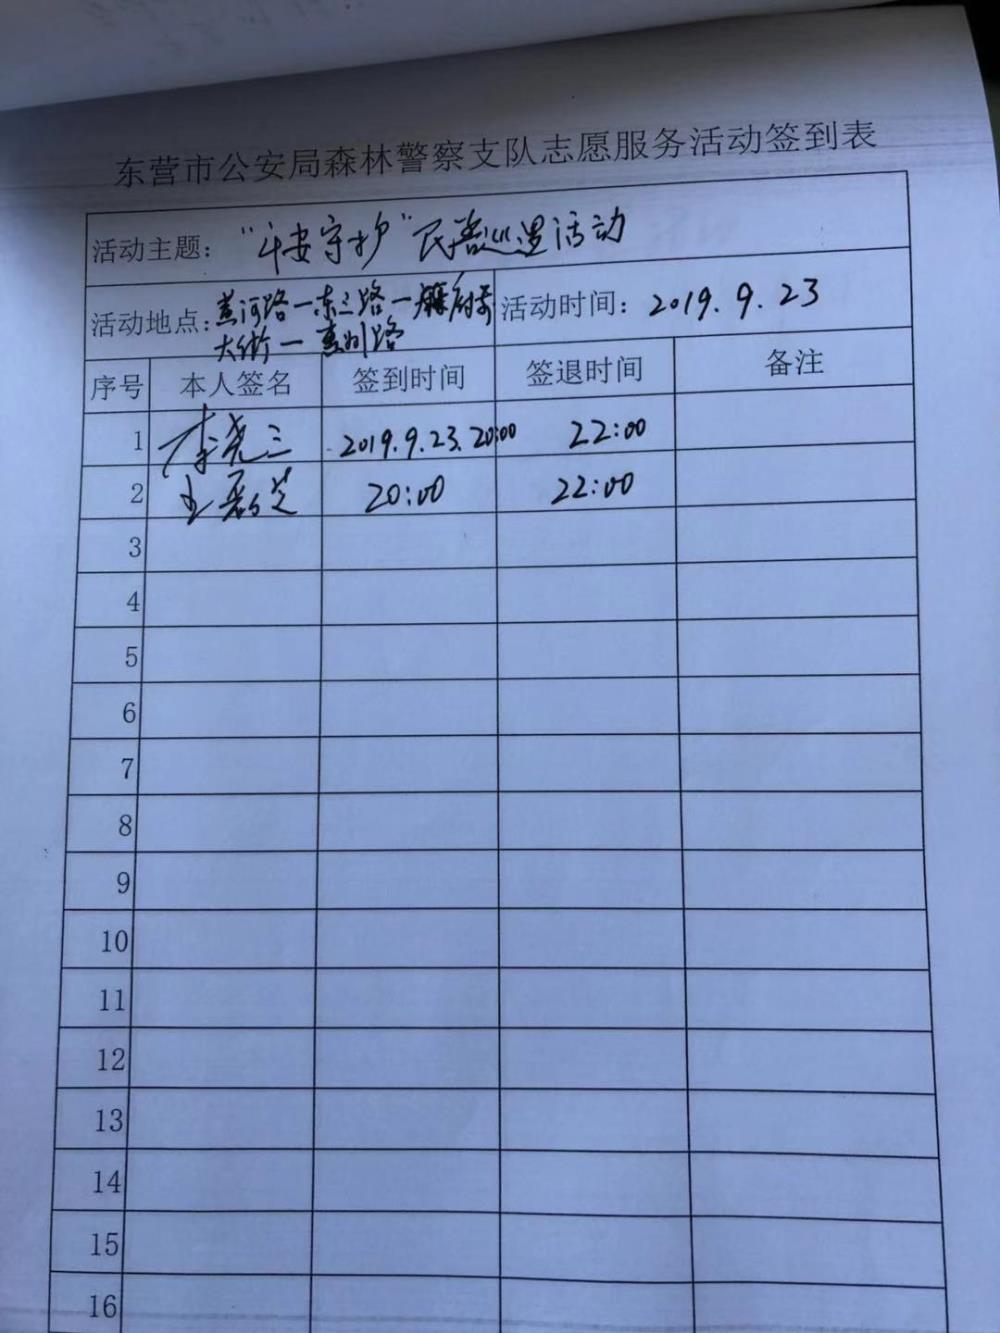 东营市公安局森林警察支队志愿服务活动签到表
活动主题：“平安守护”民警巡逻活动
活动地点：黄河路一东三路一府前
大街一惠州路
活动时间：2019.9.23
序号 本人签名 签到时间 签退时间 备注
1 李尧三 2019.9.23.20:00 22:00
2 20:00 22:00
3
4
5
6
7
8
9
10
11
12
13
14
15
16